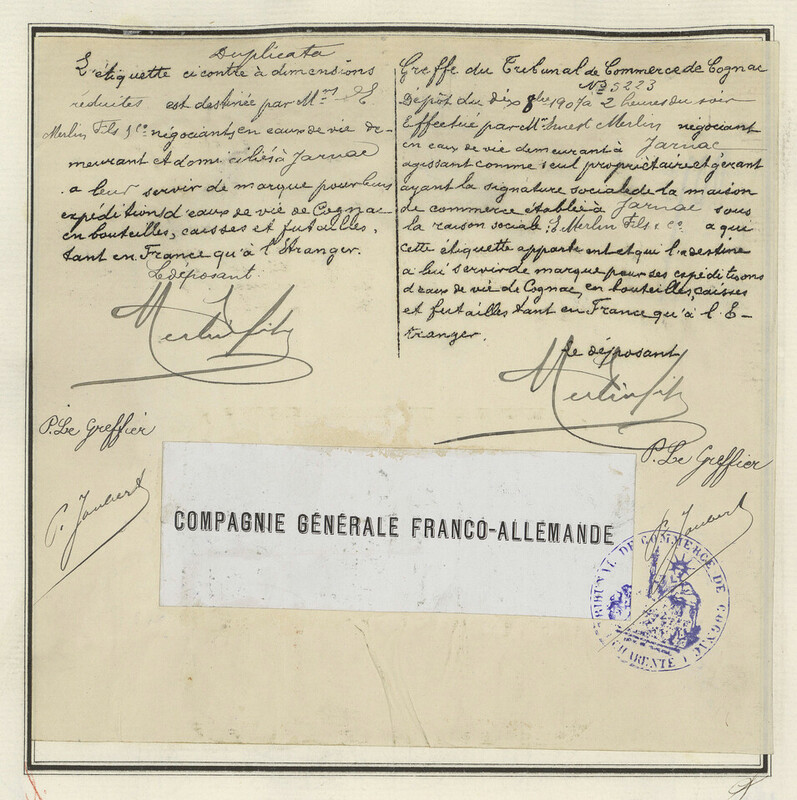 Duplicata
L'étiquette ci contre à dimensions
réduites est destinée par Mrs E
Merlin Fils & Co négociants en eaux de vie de-
meurant et domiciliés à Jarnac
a leur servir de marque pour leurs
expéditions d'eaux de vie de Cognac
en bouteilles, caisses et futailles,
tant en France qu'à l'Etranger.
Le déposant
Merlin Fils
P. Le Greffier
Greffe du Tribunal de Commerce de Cognac
No 5223
Dépôt du dix 8bre 1907 à 2 heures du soir
Effectué par Mr Ernest Merlin négociant
en eaux de vie demeurant à Jarnac
agissant comme seul propriétaire et gérant
ayant la signature sociale de la maison
de commerce établie à Jarnac sous
la raison sociale: E Merlin Fils & Co. a que
cette étiquette appartient et qu'il la destine
a lui servir de marque pour ses expéditions
d'eaux de vie de Cognac, en bouteilles, caisses
et futailles tant en France qu'à l'E-
tranger.
Le déposant
Merlin Fils
P. Le Greffier
COMPAGNIE GÉNÉRALE FRANCO-ALLEMANDE
TRIBUNAL DE COMMERCE DE COGNAC
CHARENTE